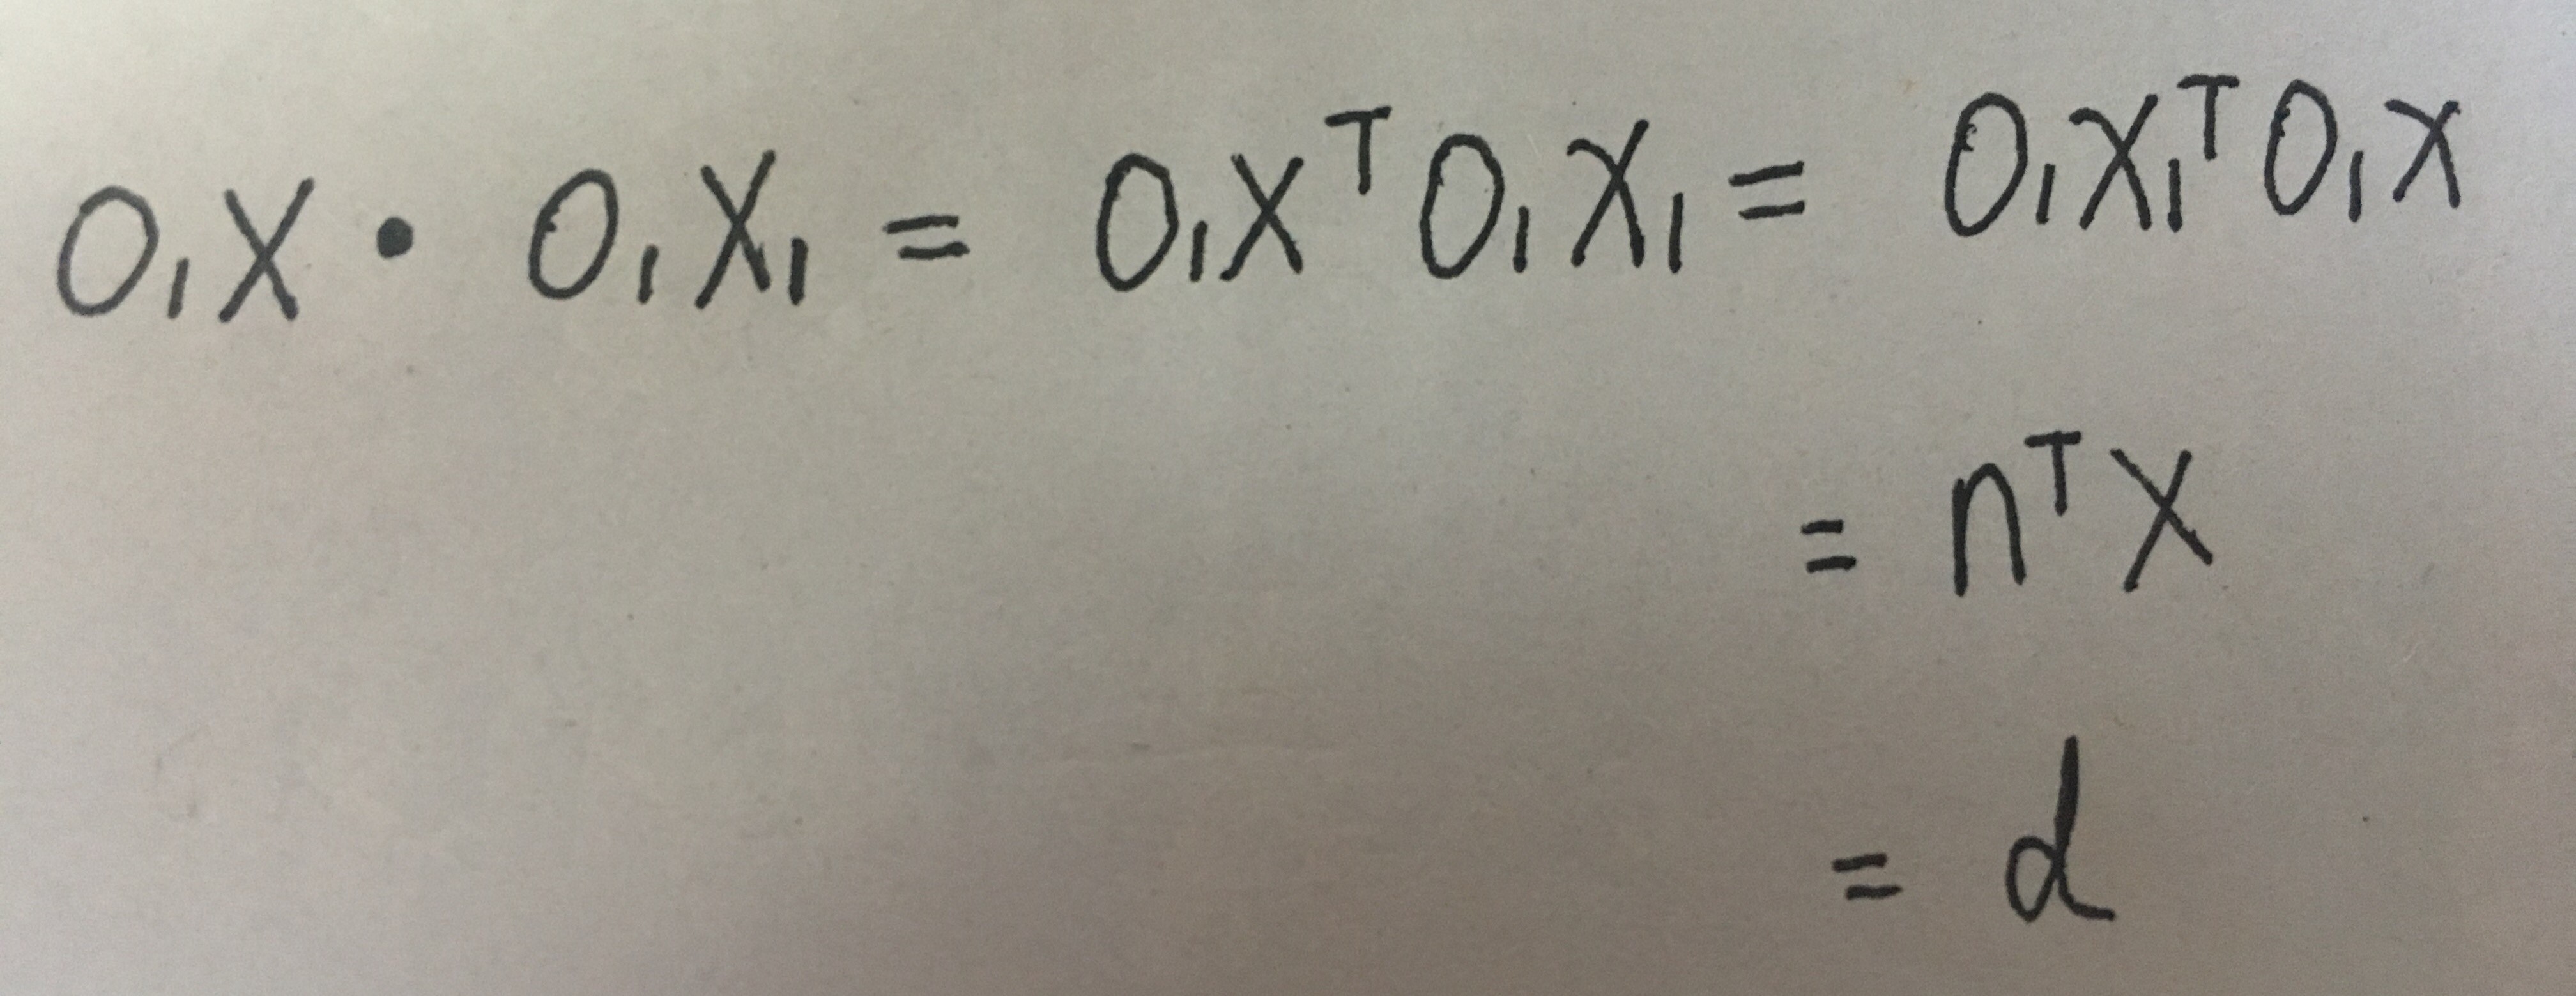 O₁X · O₁X₁ = O₁Xᵀ O₁X₁ = O₁X₁ᵀ O₁X
= nᵀX
= d